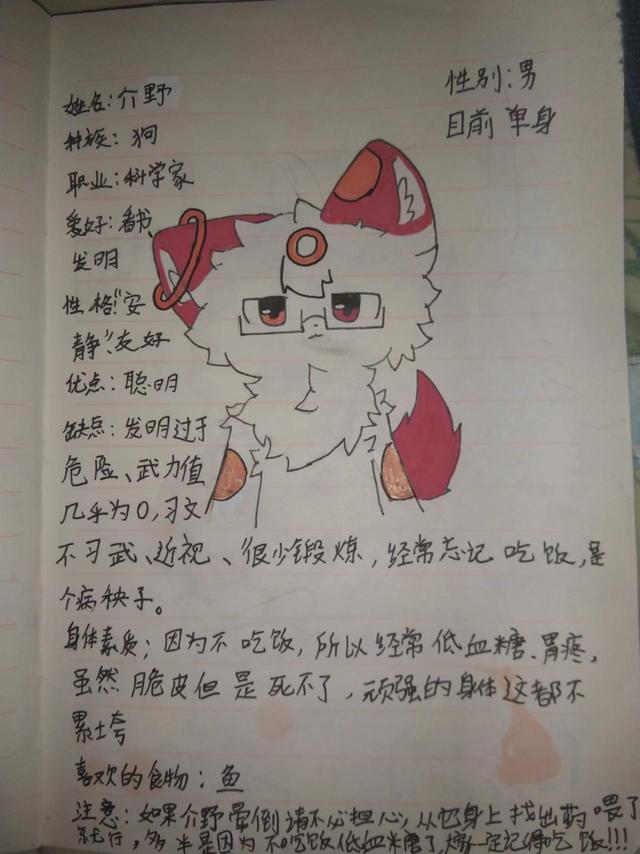 姓名:介野
性别:男
种族:狗
目前 单身
职业:科学家
爱好:看书、
发明
性格:"安
静"、友好
优点:聪明
缺点:发明过于
危险、武力值
几乎为0,习文
不习武、近视、很少锻炼,经常忘记吃饭,是
个病秧子。
身体素质:因为不吃饭,所以经常低血糖、胃疼,
虽然脆皮但是死不了,顽强的身体这都不
累垮
喜欢的食物:鱼
注意:如果介野晕倒请不必担心,从他身上找出药喂了
就行,多半是因为不吃饭低血糖了,一定记得吃饭!!!